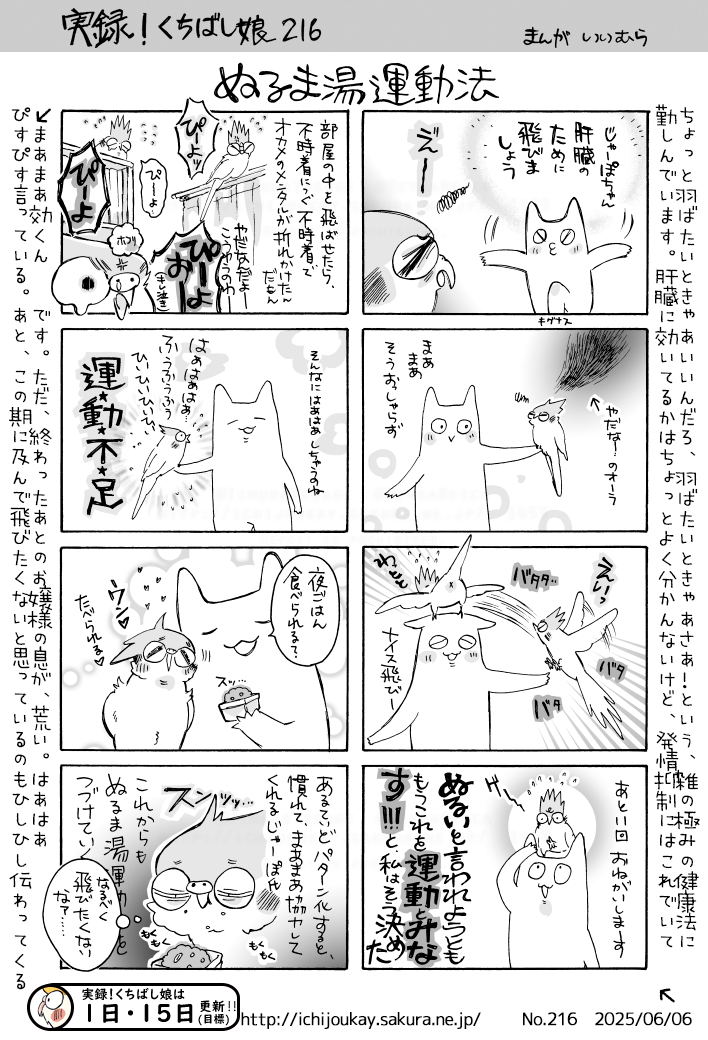 実録！くちばし娘216
まんが いいむら
ぬるま湯運動法
ちょっと羽ばたいときゃあいいんだろ、羽ばたいときゃあさあ！という、雑の極みの健康法に
勤しんでいます。肝臓に効いてるかはちょっとよく分かんないけど、発情抑制にはこれでいて
じゃーぽちゃん
肝臓の
ために
飛びま
しょう
えー
キグナス
まあ
まあ
そうおっしゃらず
やだな…のオーラ
えいっ
バタタ…
バタ
バタ
ナイス飛びー
あと11回 おねがいします
ゲッ
ぬるいと言われようとも
もうこれを運動とみな
す!!!と、私はそう決めた
部屋の中を飛ばせたら、
不時着につぐ不時着で
オカメのメンタルが折れかけたん
だもん
ぴーよッ
ぴーよ!
ぴーよ
ホコリ
やだなんだよー
こうゆうのわ
ぴーよ
おー
(キレ泣き)
そんなにはあはあしちゃうのね
はぁはぁはぁ…
ふうふうふうぅ
ひぃひぃひぃひぃ
運・動・不・足
夜ごはん
食べられる？
ウン♡
たべられる♡
スッ…
あるていどパターン化すると、
慣れて、まあまあ協力して
くれるじゃーぽ氏
スンッッ…
もくもく
もくもく
これからも
ぬるま湯運動を
つづけていく
なるべく
飛びたくない
なァ……
↙まあまあ効くん　です。ただ、終わったあとのお嬢様の息が、荒い。はあはあ
ぴすぴす言っている。あと、この期に及んで飛びたくないと思っているのもひしひし伝わってくる
実録！くちばし娘は
1日・15日更新!!
(目標)
http://ichijoukay.sakura.ne.jp/
No.216 2025/06/06